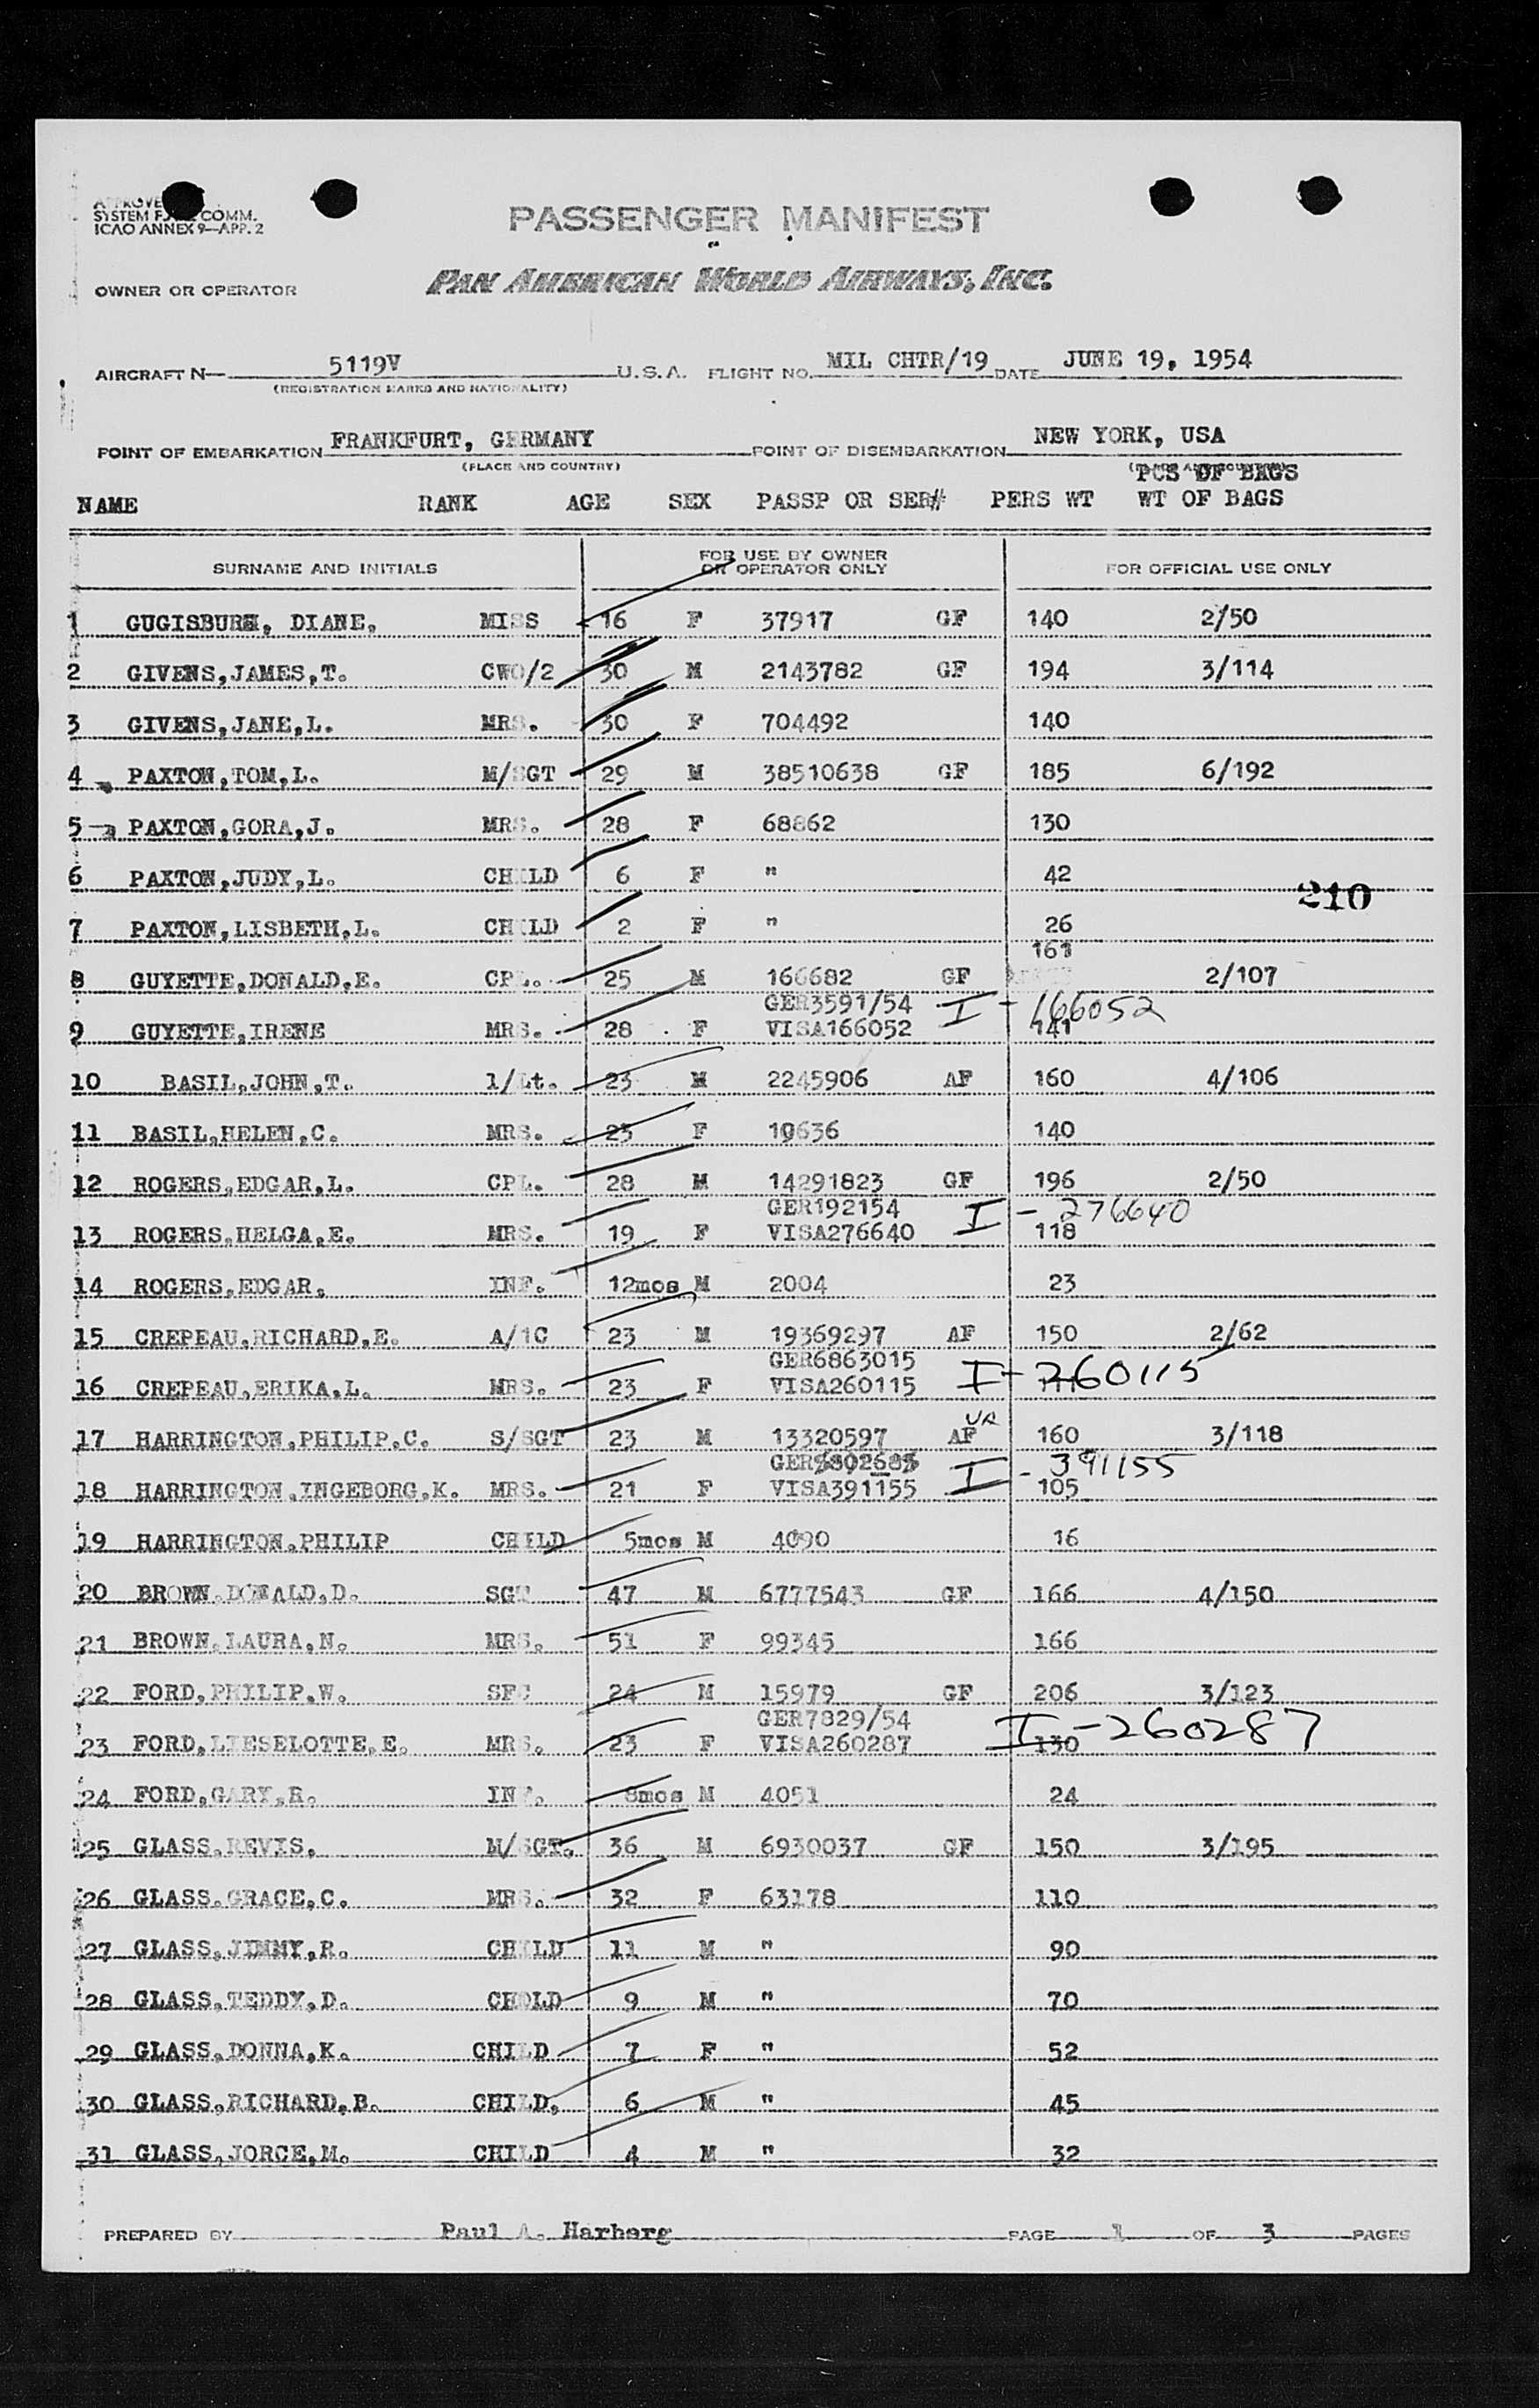 SYSTEM COMM.
ICAO ANNEX 9—APP. 2
PASSENGER MANIFEST
OWNER OR OPERATOR
PAN AMERICAN WORLD AIRWAYS, INC.
AIRCRAFT N— 5119V U.S.A. FLIGHT NO. MIL CHTR/19 DATE JUNE 19, 1954
(REGISTRATION MARKS AND NATIONALITY)
POINT OF EMBARKATION FRANKFURT, GERMANY POINT OF DISEMBARKATION NEW YORK, USA
(PLACE AND COUNTRY)
PCS OF BAGS
NAME RANK AGE SEX PASSP OR SER# PERS WT WT OF BAGS
SURNAME AND INITIALS FOR USE BY OWNER OR OPERATOR ONLY FOR OFFICIAL USE ONLY
1 DIANE. MISS 16 F 37917 GF 140 2/50
2 GIVENS,JAMES,T. CWO/2 30 M 2143782 GF 194 3/114
3 GIVENS,JANE,L. MRS. 30 F 704492 140
4 PAXTON,TOM,L. M/SGT 29 M 38510638 GF 185 6/192
5 PAXTON,GORA,J. MRS. 28 F 68862 130
6 PAXTON,JUDY,L. CHILD 6 F " 42
210
7 PAXTON,LISBETH,L. CHILD 2 F " 26
161
8 GUYETTE,DONALD,E. CPL. 25 M 166682 GF 2/107
GER3591/54 I - 166052
9 GUYETTE,IRENE MRS. 28 F VISA166052 141
10 BASIL,JOHN,T. 1/Lt. 23 M 2245906 AF 160 4/106
11 BASIL,HELEN,C. MRS. 23 F 19636 140
12 ROGERS,EDGAR,L. CPL. 28 M 14291823 GF 196 2/50
GER192154 I - 276640
13 ROGERS,HELGA,E. MRS. 19 F VISA276640 118
14 ROGERS,EDGAR. INF. 12mos M 2004 23
15 CREPEAU,RICHARD,E. A/1C 23 M 19369297 AF 150 2/62
GER6863015 I - 260115
16 CREPEAU,ERIKA,L. MRS. 23 F VISA260115
17 HARRINGTON,PHILIP,C. S/SGT 23 M 13320597 AF 160 3/118
I - 391155
18 HARRINGTON,INGEBORG,K. MRS. 21 F VISA391155 105
19 HARRINGTON,PHILIP CHILD 5mos M 4090 16
20 BROWN,DONALD,D. SGT 47 M 6777543 GF 166 4/150
21 BROWN,LAURA,N. MRS. 51 F 99345 166
22 FORD,PHILIP,W. SFC 24 M 15979 GF 206 3/123
GER7829/54 I - 260287
23 FORD,LIESELOTTE,E. MRS. 23 F VISA260287 130
24 FORD,GARY,R. INF. 8mos M 4051 24
25 GLASS,REVIS. M/SGT. 36 M 6930037 GF 150 3/195
26 GLASS,GRACE,C. MRS. 32 F 63178 110
27 GLASS,JIMMY,R. CHILD 11 M " 90
28 GLASS,TEDDY,D. CHOLD 9 M " 70
29 GLASS,DONNA,K. CHILD 7 F " 52
30 GLASS,RICHARD,B. CHILD. 6 M " 45
31 GLASS,JORCE,M. CHILD 4 M " 32
PREPARED BY Paul A. Harberg PAGE 1 OF 3 PAGES